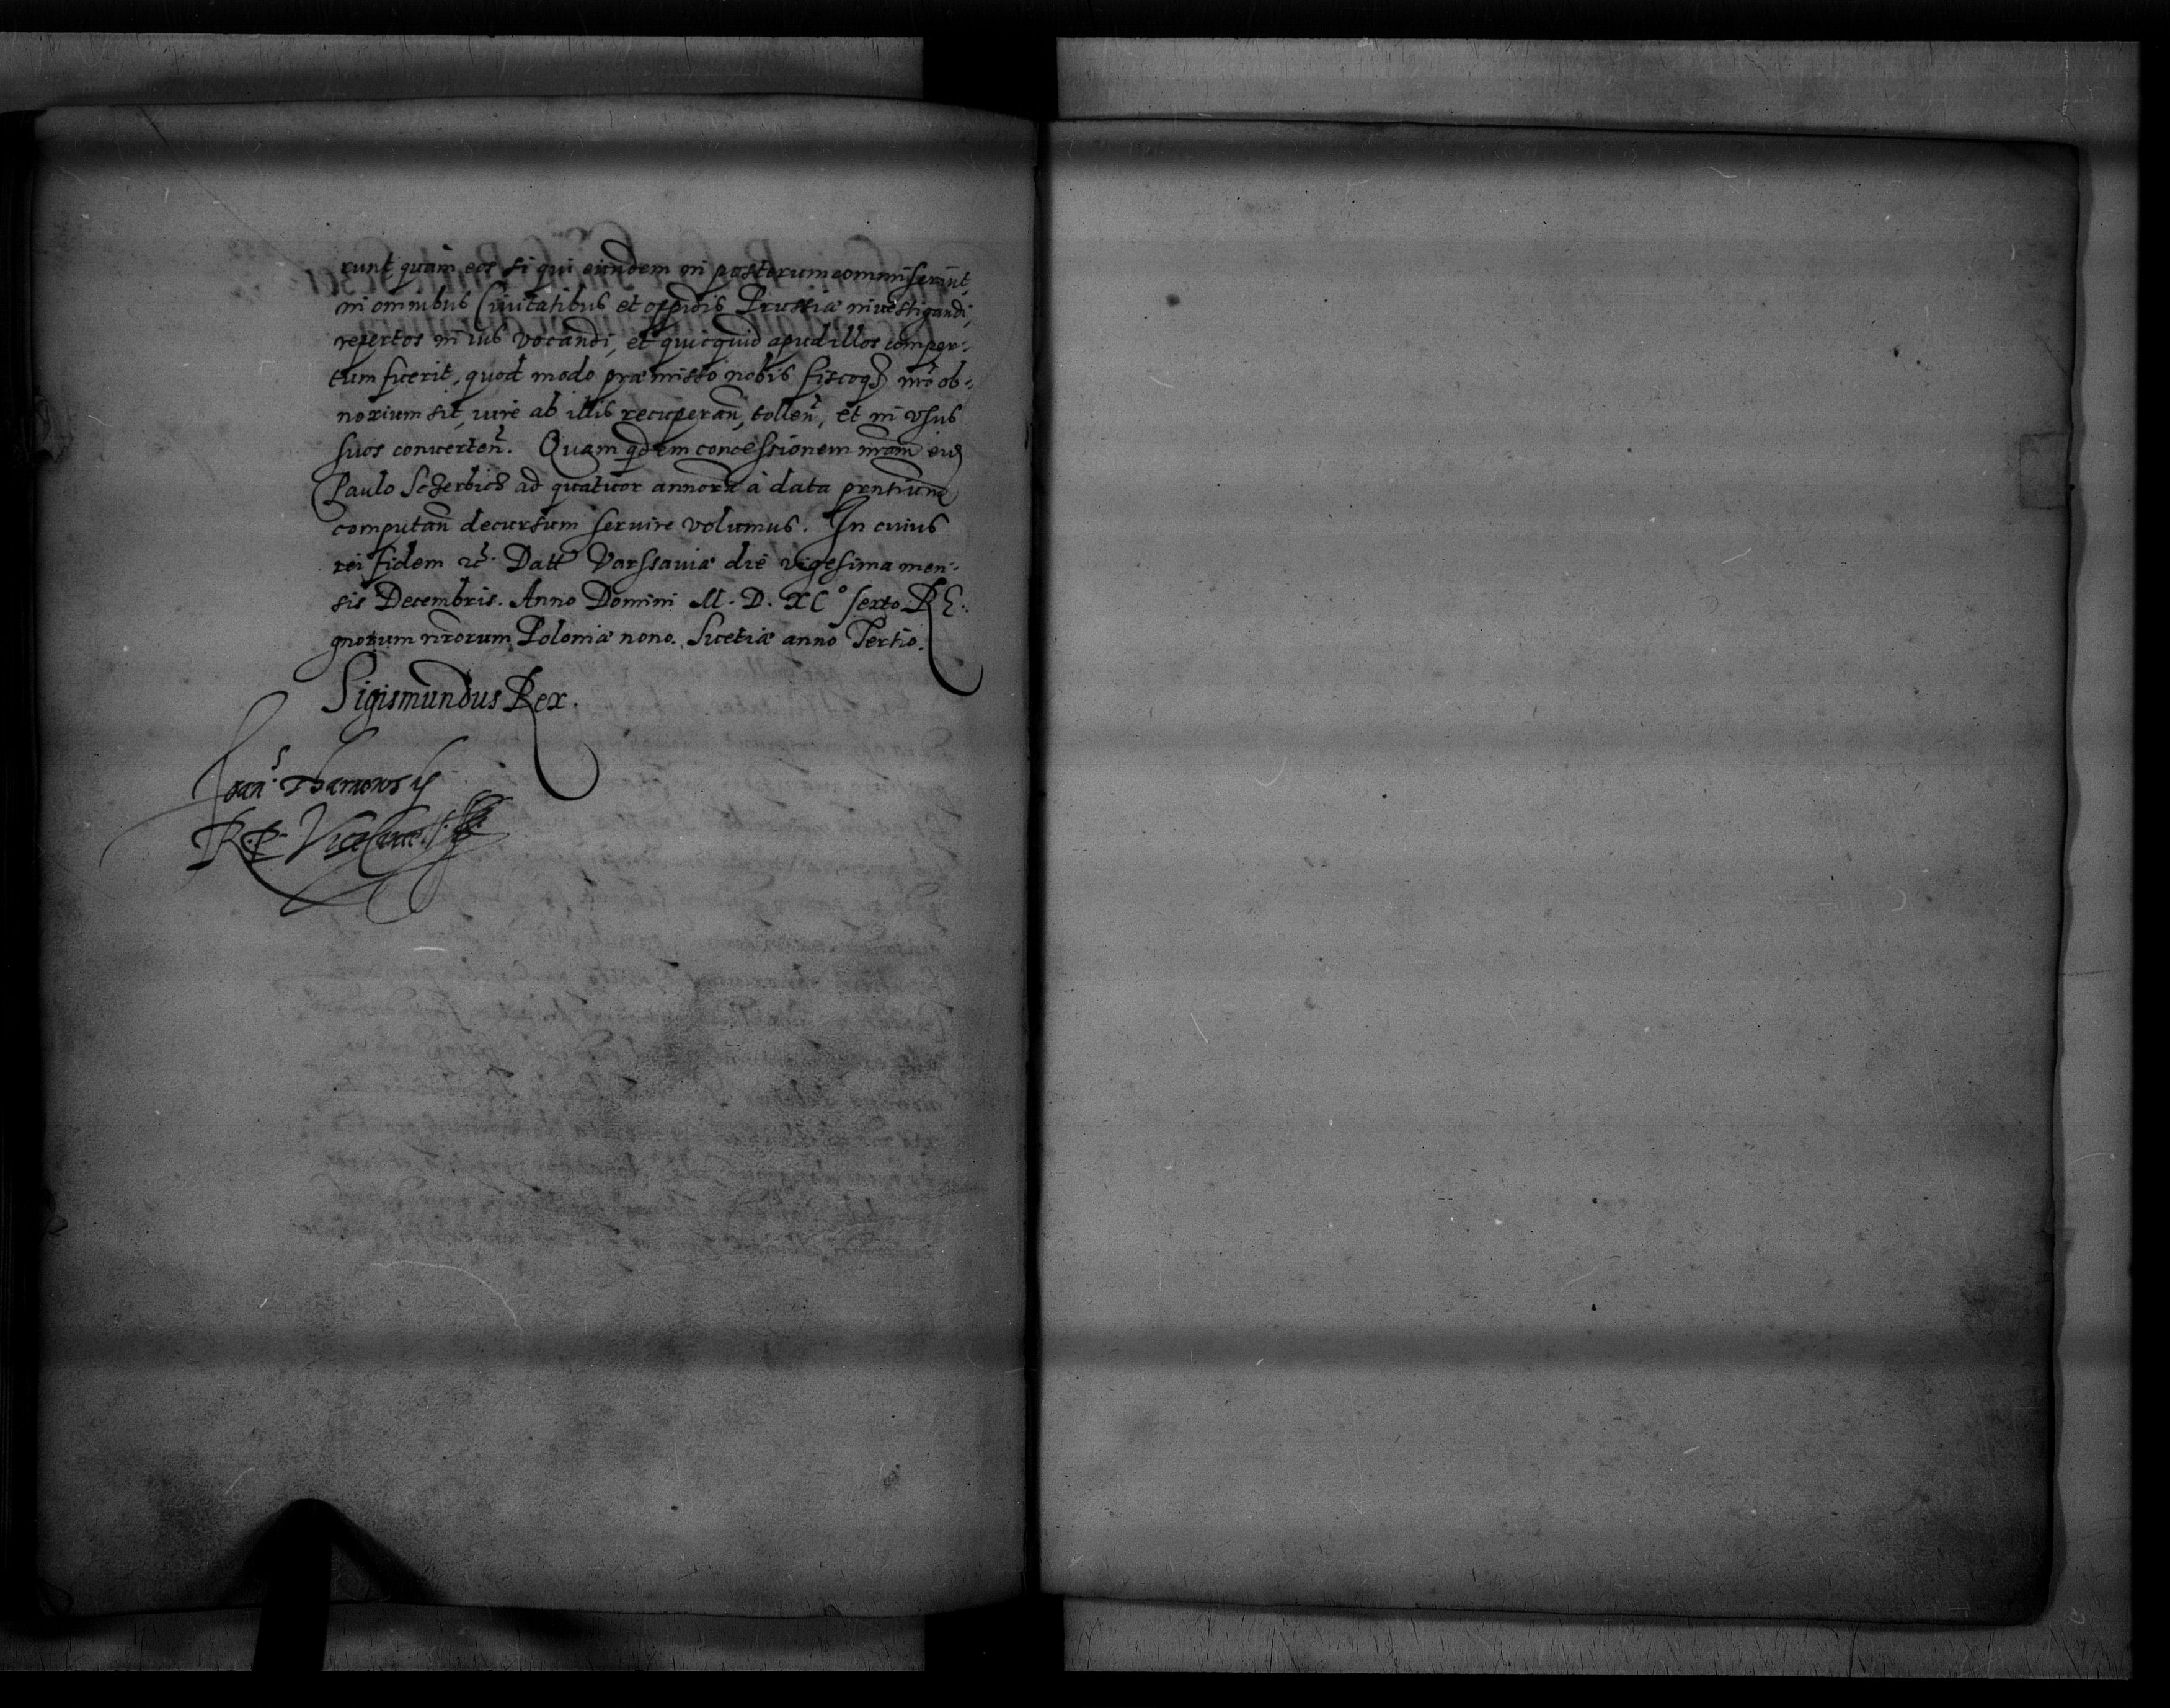 runt quam eos si qui eiusdem in posterum commiserint,
in omnibus Civitatibus et oppidis Prussiæ investigandi,
repertos in ius vocandi, et quicquid apud illos comper-
tum fuerit, quod modo præmisso nobis fiscoq3 nrō ob-
noxium sit, iure ab illis recuperan̄, tollen̄, et in vsus
suos converten̄. Quam qdem concessionem nrām eid
Paulo Sczerbicz ad quatuor annorū à data prntium
computan̄ decursum servire volumus. In cuius
rei fidem etc. Datt Varssaviæ die vigesima men-
sis Decembris. Anno Domini M. D. XC° sexto. RE-
gnorum nrorum Poloniæ nono. Suetiæ anno Tertio.
Sigismundus Rex.
Joan̄s Tharnowsky
R. P. Vicecanc.